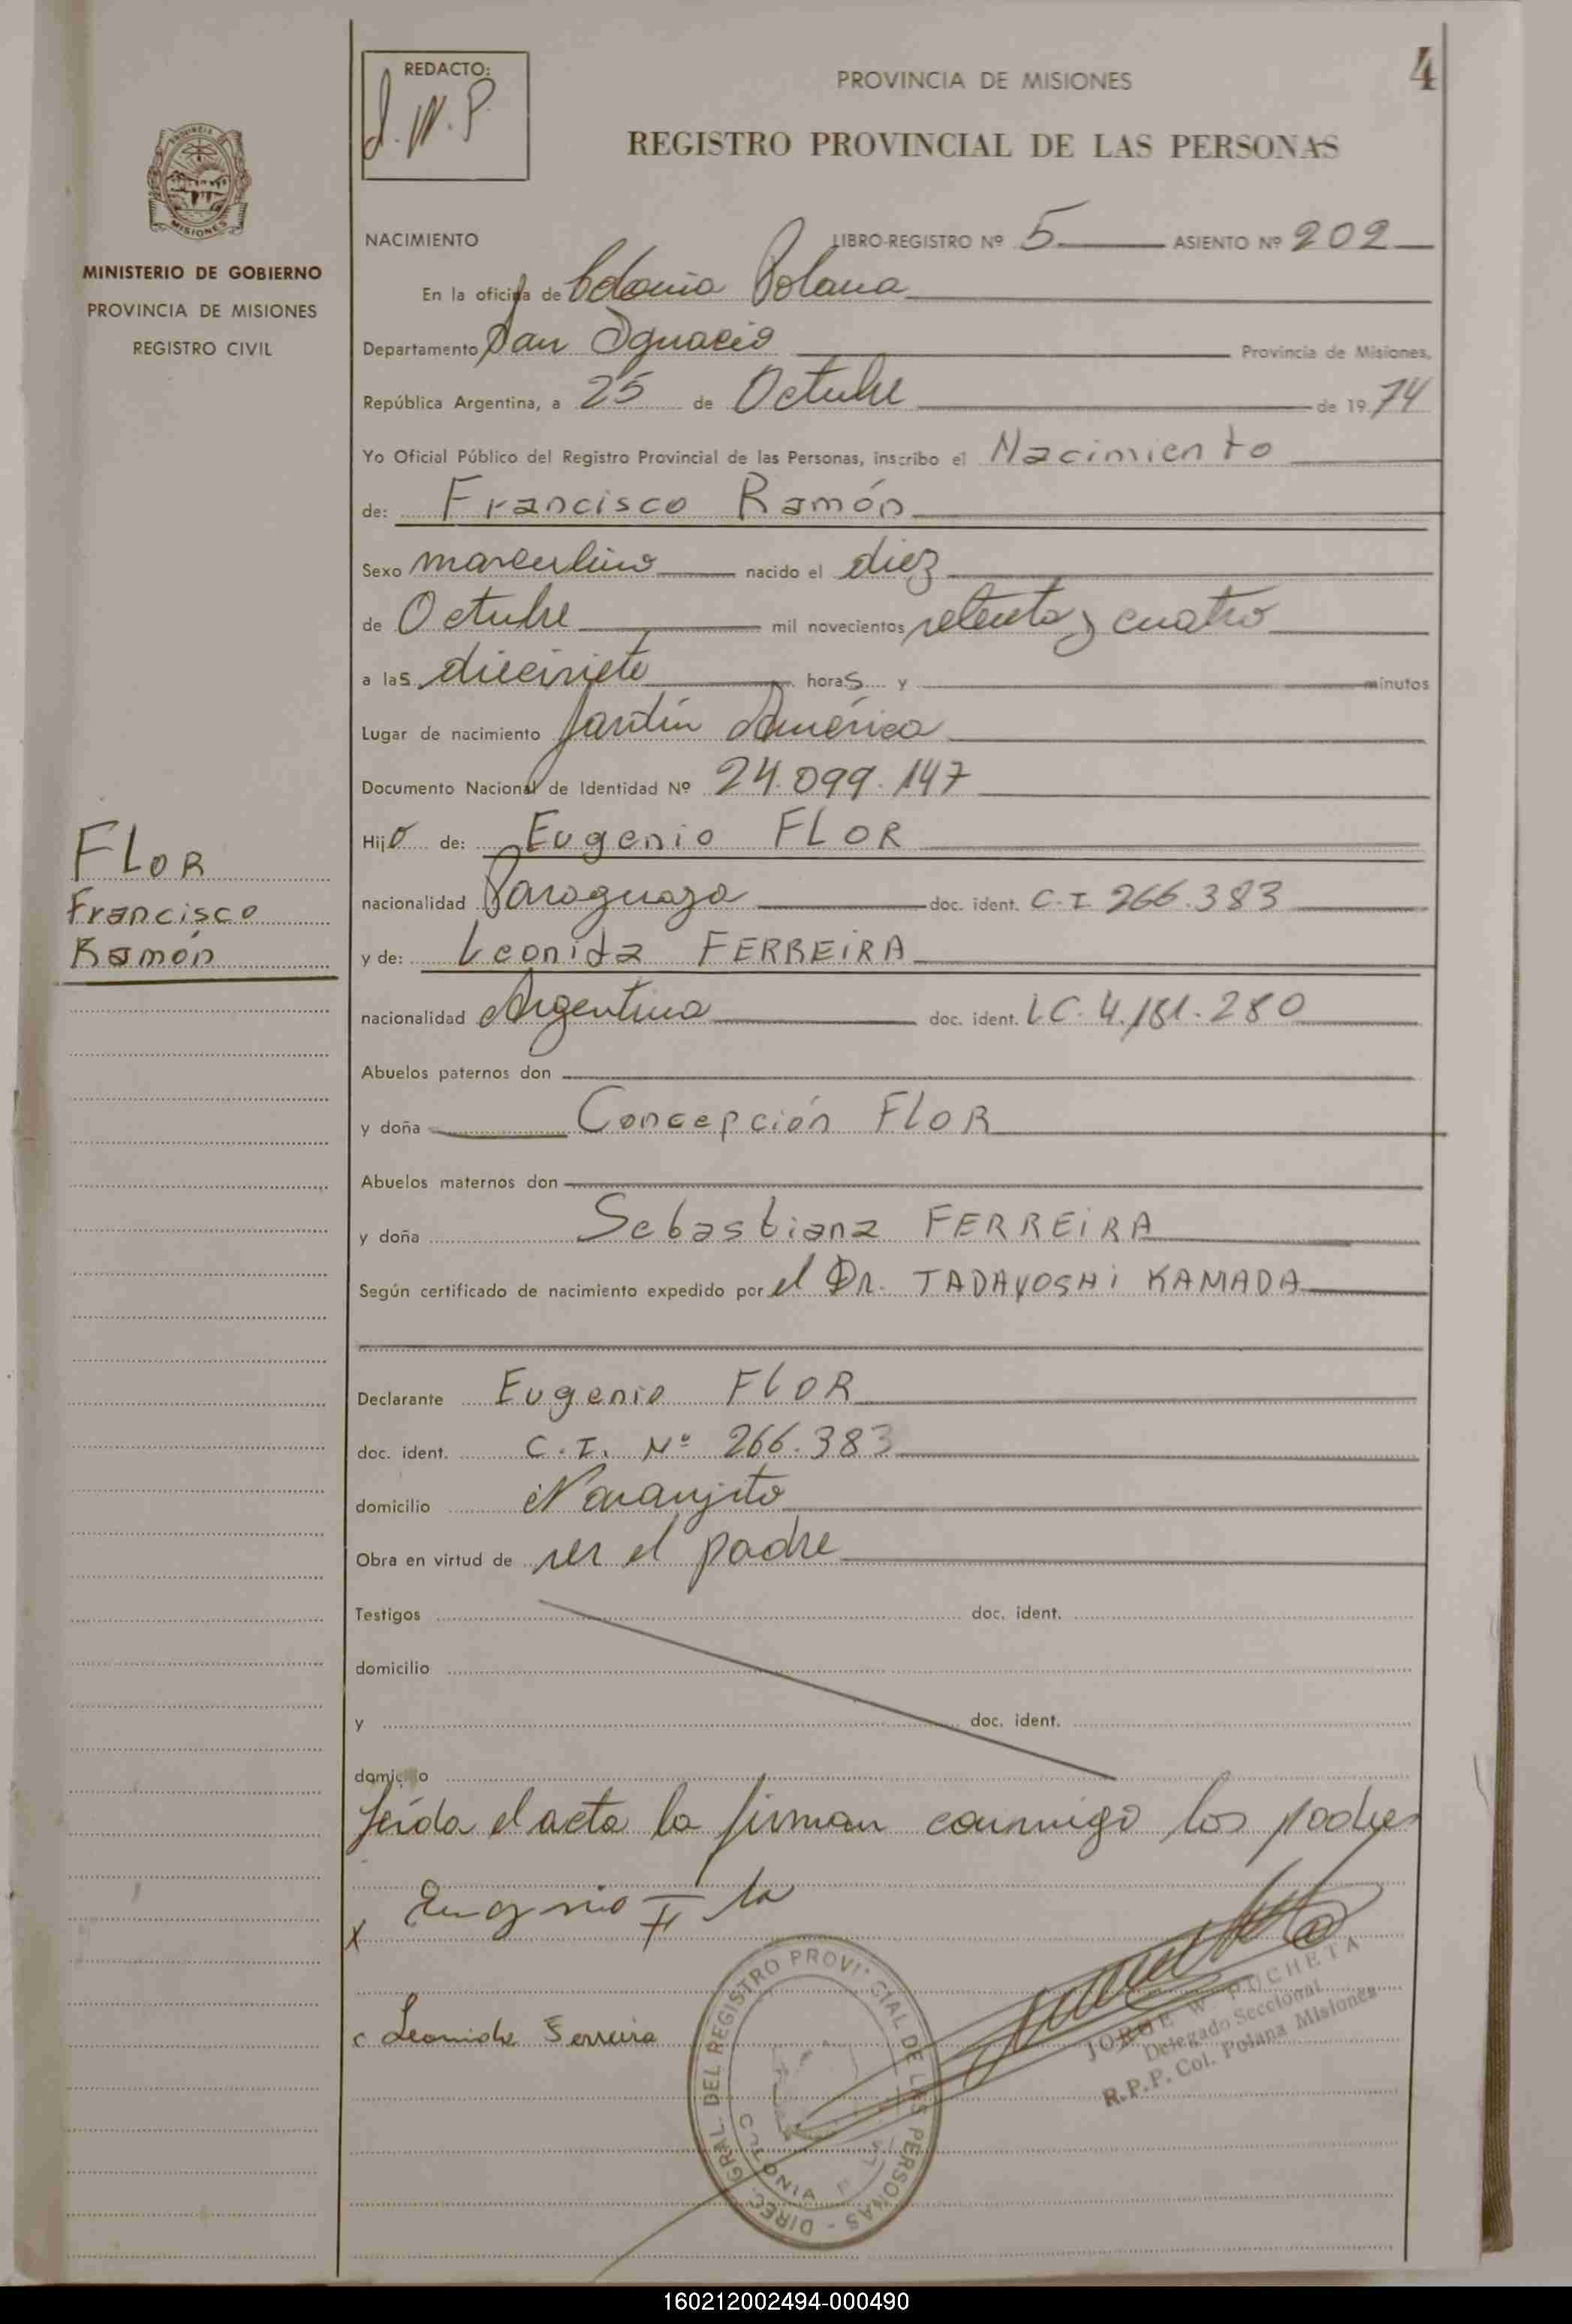 REDACTO:
J.W.P.
PROVINCIA DE MISIONES
4
REGISTRO PROVINCIAL DE LAS PERSONAS
MISIONES
MINISTERIO DE GOBIERNO
PROVINCIA DE MISIONES
REGISTRO CIVIL
FLOR
Francisco
Ramón
NACIMIENTO LIBRO-REGISTRO Nº 5 ASIENTO Nº 202
En la oficina de Colonia Polana
Departamento San Ignacio Provincia de Misiones,
República Argentina, a 25 de Octubre de 1974
Yo Oficial Público del Registro Provincial de las Personas, inscribo el Nacimiento
de: Francisco Ramón
Sexo masculino nacido el diez
de Octubre mil novecientos setenta y cuatro
a las diecisiete horas y minutos
Lugar de nacimiento Jardín América
Documento Nacional de Identidad Nº 24.099.147
Hijo de: Eugenio FLOR
nacionalidad Paraguaya doc. ident. C.I 266.383
y de: Leonida FERREIRA
nacionalidad Argentina doc. ident. LC. 4.181.280
Abuelos paternos don
y doña Concepción FLOR
Abuelos maternos don
y doña Sebastiana FERREIRA
Según certificado de nacimiento expedido por el Dr. TADAYOSHI KAMADA
Declarante Eugenio FLOR
doc. ident. C.I. Nº 266.383
domicilio Naranjito
Obra en virtud de ser el padre
Testigos doc. ident.
domicilio
y doc. ident.
domicilio
Leída el acta la firman conmigo los padres
x Eugenio
Leonida Ferreira
DIREC. GRAL. DEL REGISTRO PROVINCIAL DE LAS PERSONAS - COLONIA
JORGE W. PUCHETA
Delegado Seccional
R.P.P. Col. Polana Misiones
160212002494-000490